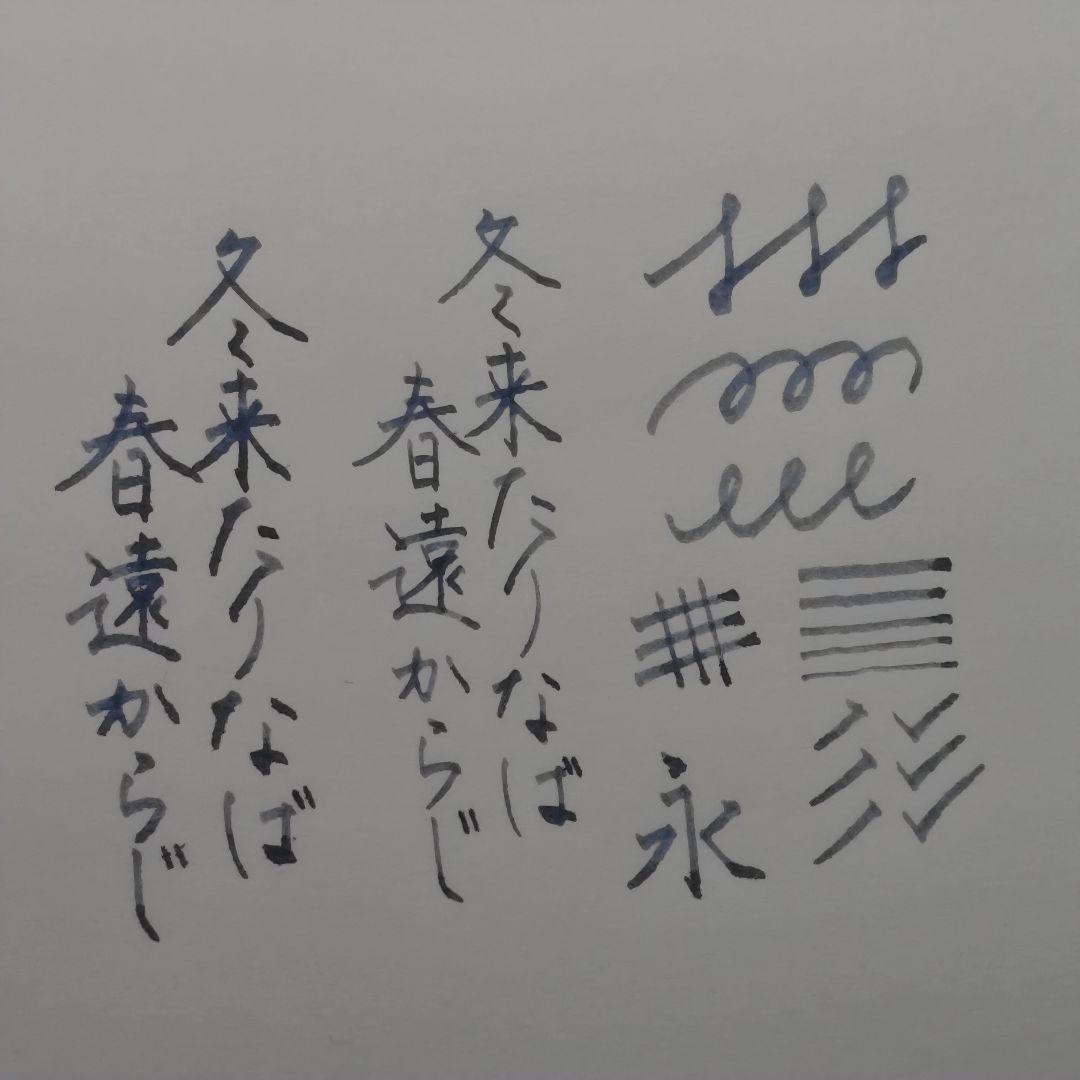 永
冬来たりなば
春遠からじ
冬来たりなば
春遠からじ